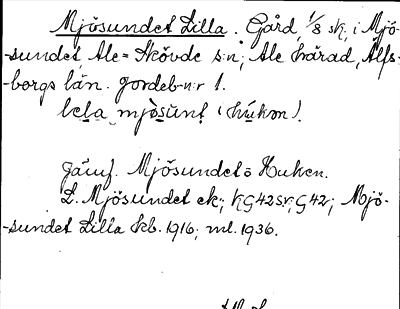 Mjösundet Lilla. Gård, 1/8 sk, i Mjö-
-sundet, Ale-Skövde s:n, Ale härad, Älfs-
-borgs län. Jordeb-n:r 1.
lɩla mjòsunt (húkan).
Jämf. Mjösundet = Huken.
L. Mjösundet ek; KG42sv, G42; Mjö-
-sundet Lilla kb. 1916; ml. 1936.